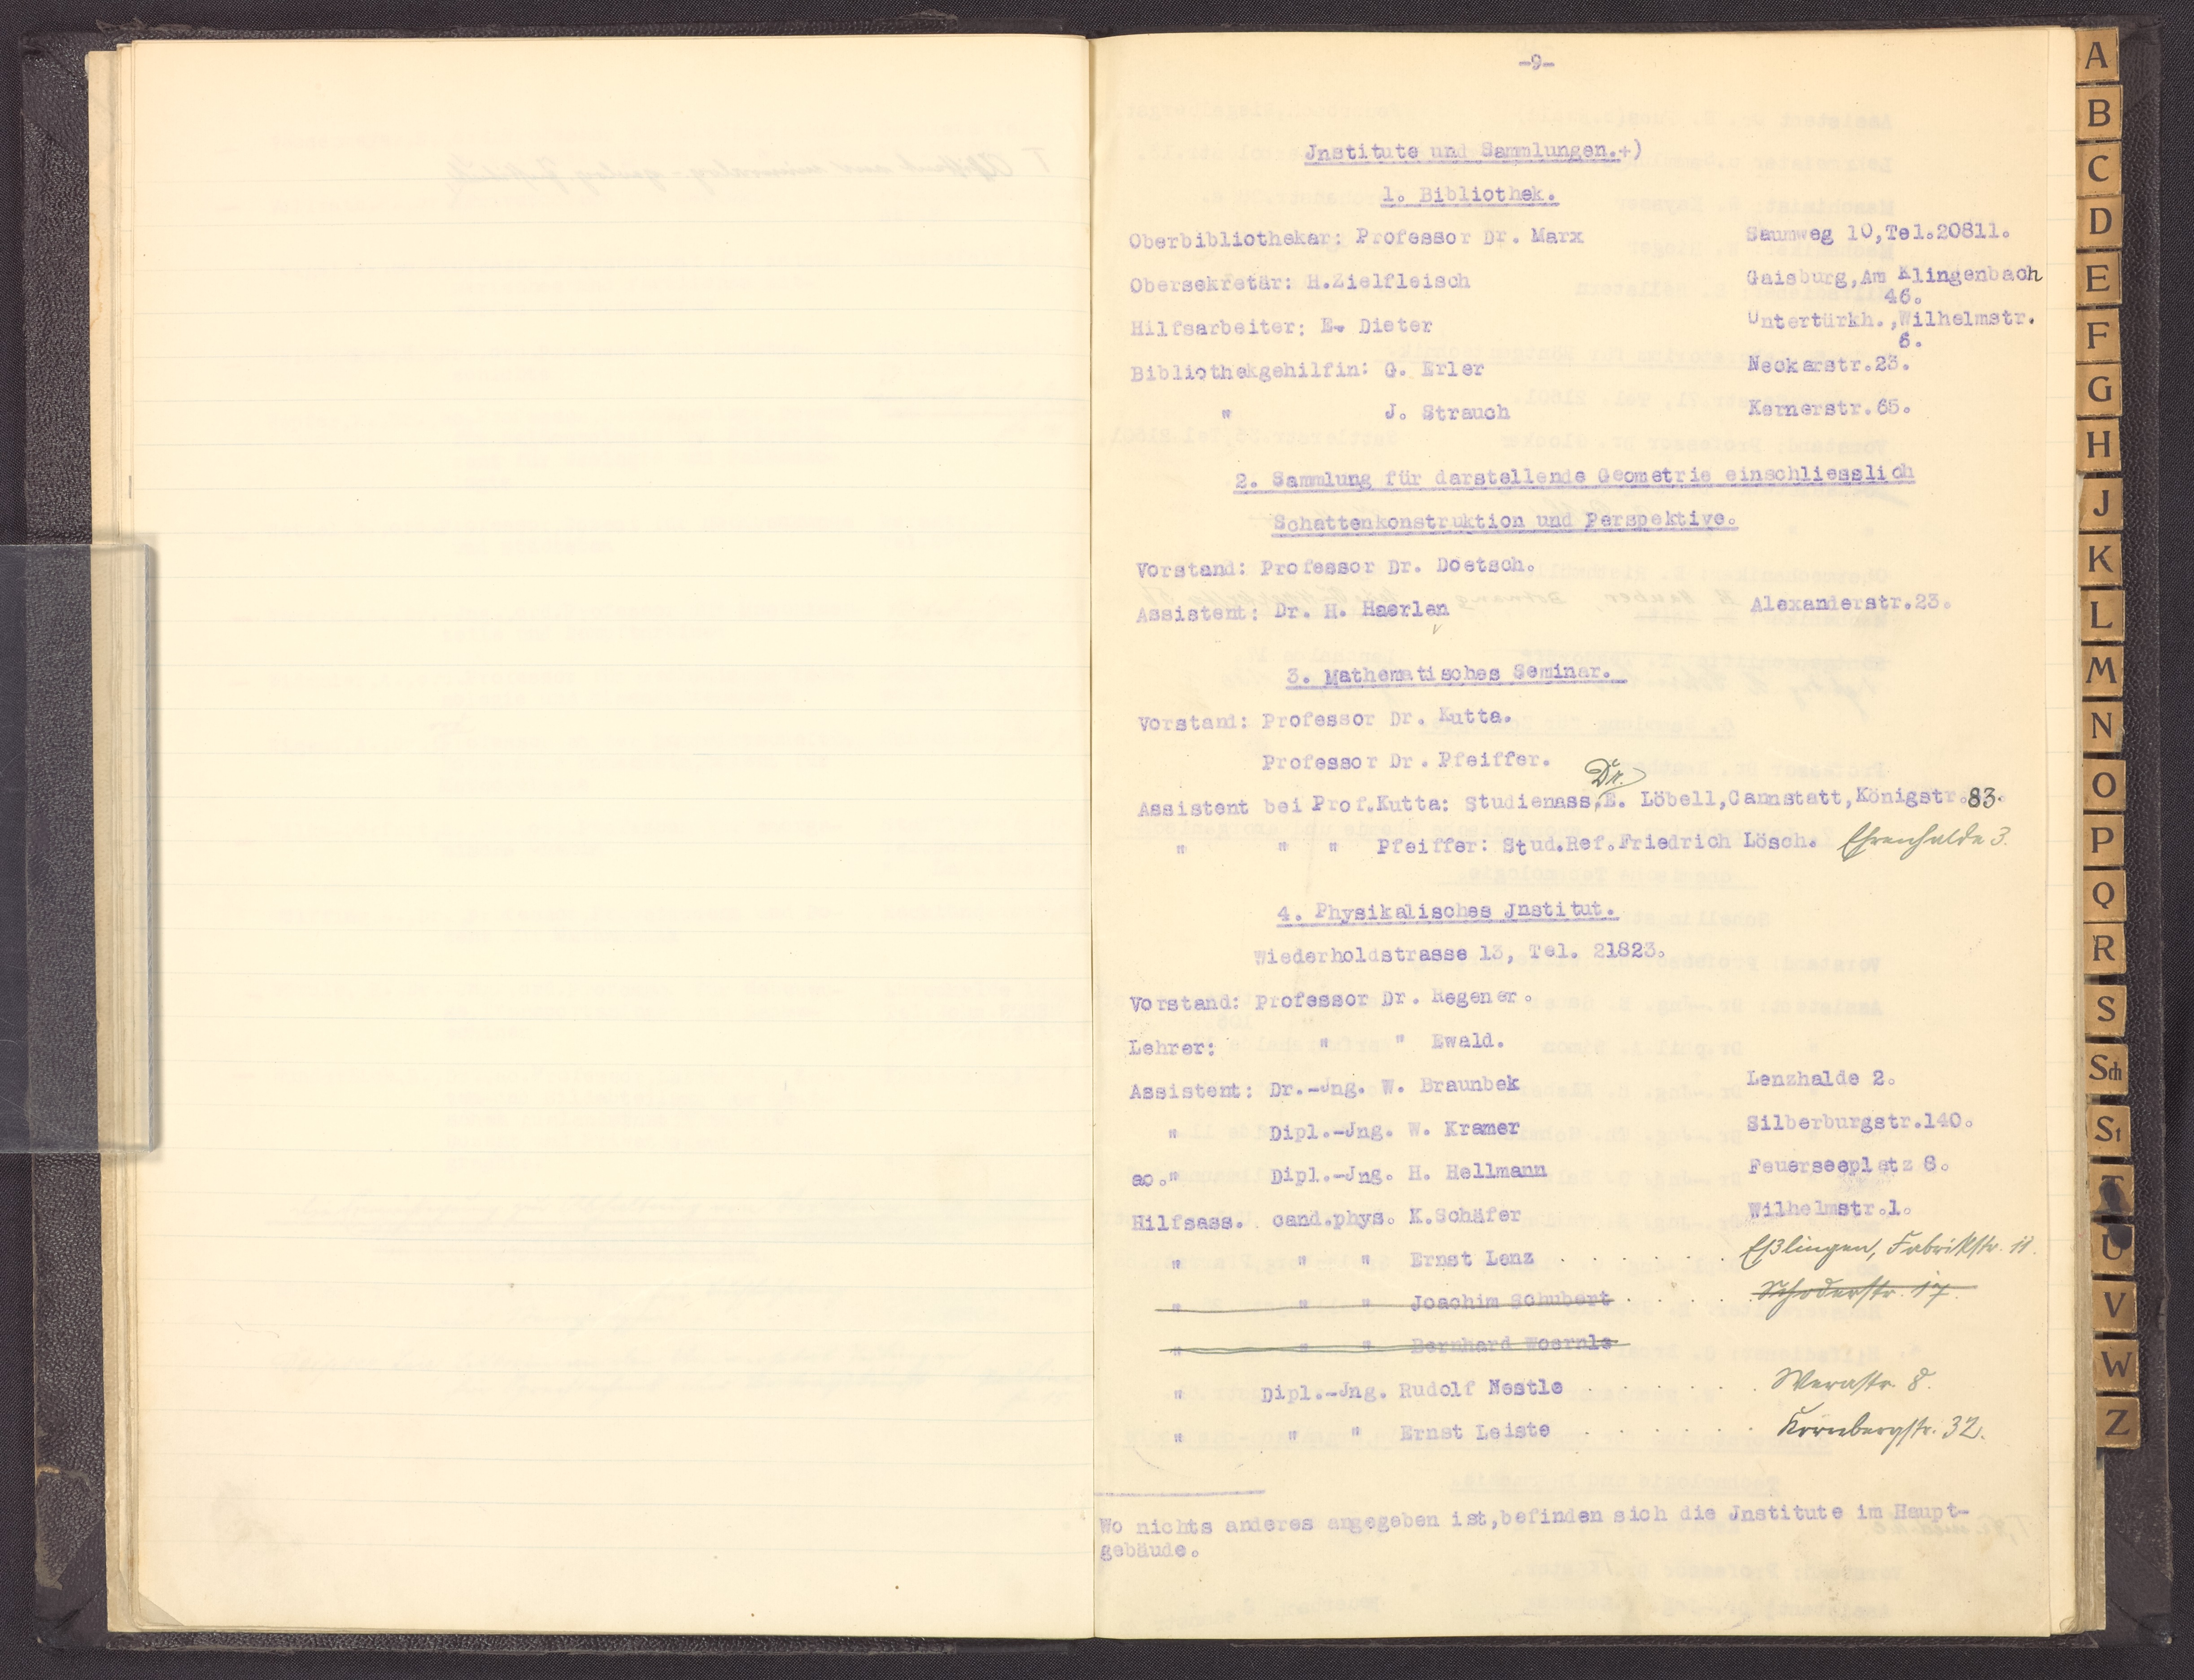 -9-
Jnstitute und Sammlungen.+)
1. Bibliothek.
Oberbibliothekar: Professor Dr. Marx Saumweg 10,Tel.20811.
Obersekretär: H.Zielfleisch Gaisburg,Am Klingenbach
46.
Hilfsarbeiter: E. Dieter Untertürkh.,Wilhelmstr.
6.
Bibliothekgehilfin: G. Erler Neckarstr.23.
" J. Strauch Kernerstr.65.
2. Sammlung für darstellende Geometrie einschliesslich
Schattenkonstruktion und Perspektive.
Vorstand: Professor Dr. Doetsch.
Assistent: Dr. H. Haerlen Alexanderstr.23.
3. Mathematisches Seminar.
Vorstand: Professor Dr. Kutta.
Professor Dr. Pfeiffer.
Dr.
Assistent bei Prof.Kutta: Studienass.E. Löbell,Cannstatt,Königstr.83.
" " " Pfeiffer: Stud.Ref.Friedrich Lösch. Ehrenhalde 3.
4. Physikalisches Jnstitut.
Wiederholdstrasse 13, Tel. 21823.
Vorstand: Professor Dr. Regener.
Lehrer: " " Ewald.
Assistent: Dr.-Jng. W. Braunbek Lenzhalde 2.
" Dipl.-Jng. W. Kramer Silberburgstr.140.
ao." Dipl.-Jng. H. Hellmann Feuerseeplatz 6.
Hilfsass. cand.phys. K.Schäfer Wilhelmstr.1.
" " " Ernst Lenz . . . . . . Eßlingen, Fabrikstr. 11.
" " " Joachim Schubert . . . . Schoderstr. 17.
" " " Bernhard Woernle
" Dipl.-Jng. Rudolf Nestle . . . . . Werastr. 8.
" " " Ernst Leiste . . . . . Körnbergstr. 32.
Wo nichts anderes angegeben ist,befinden sich die Jnstitute im Haupt-
gebäude.
A
B
C
D
E
F
G
H
J
K
L
M
N
O
P
Q
R
S
Sch
St
T
U
V
W
Z